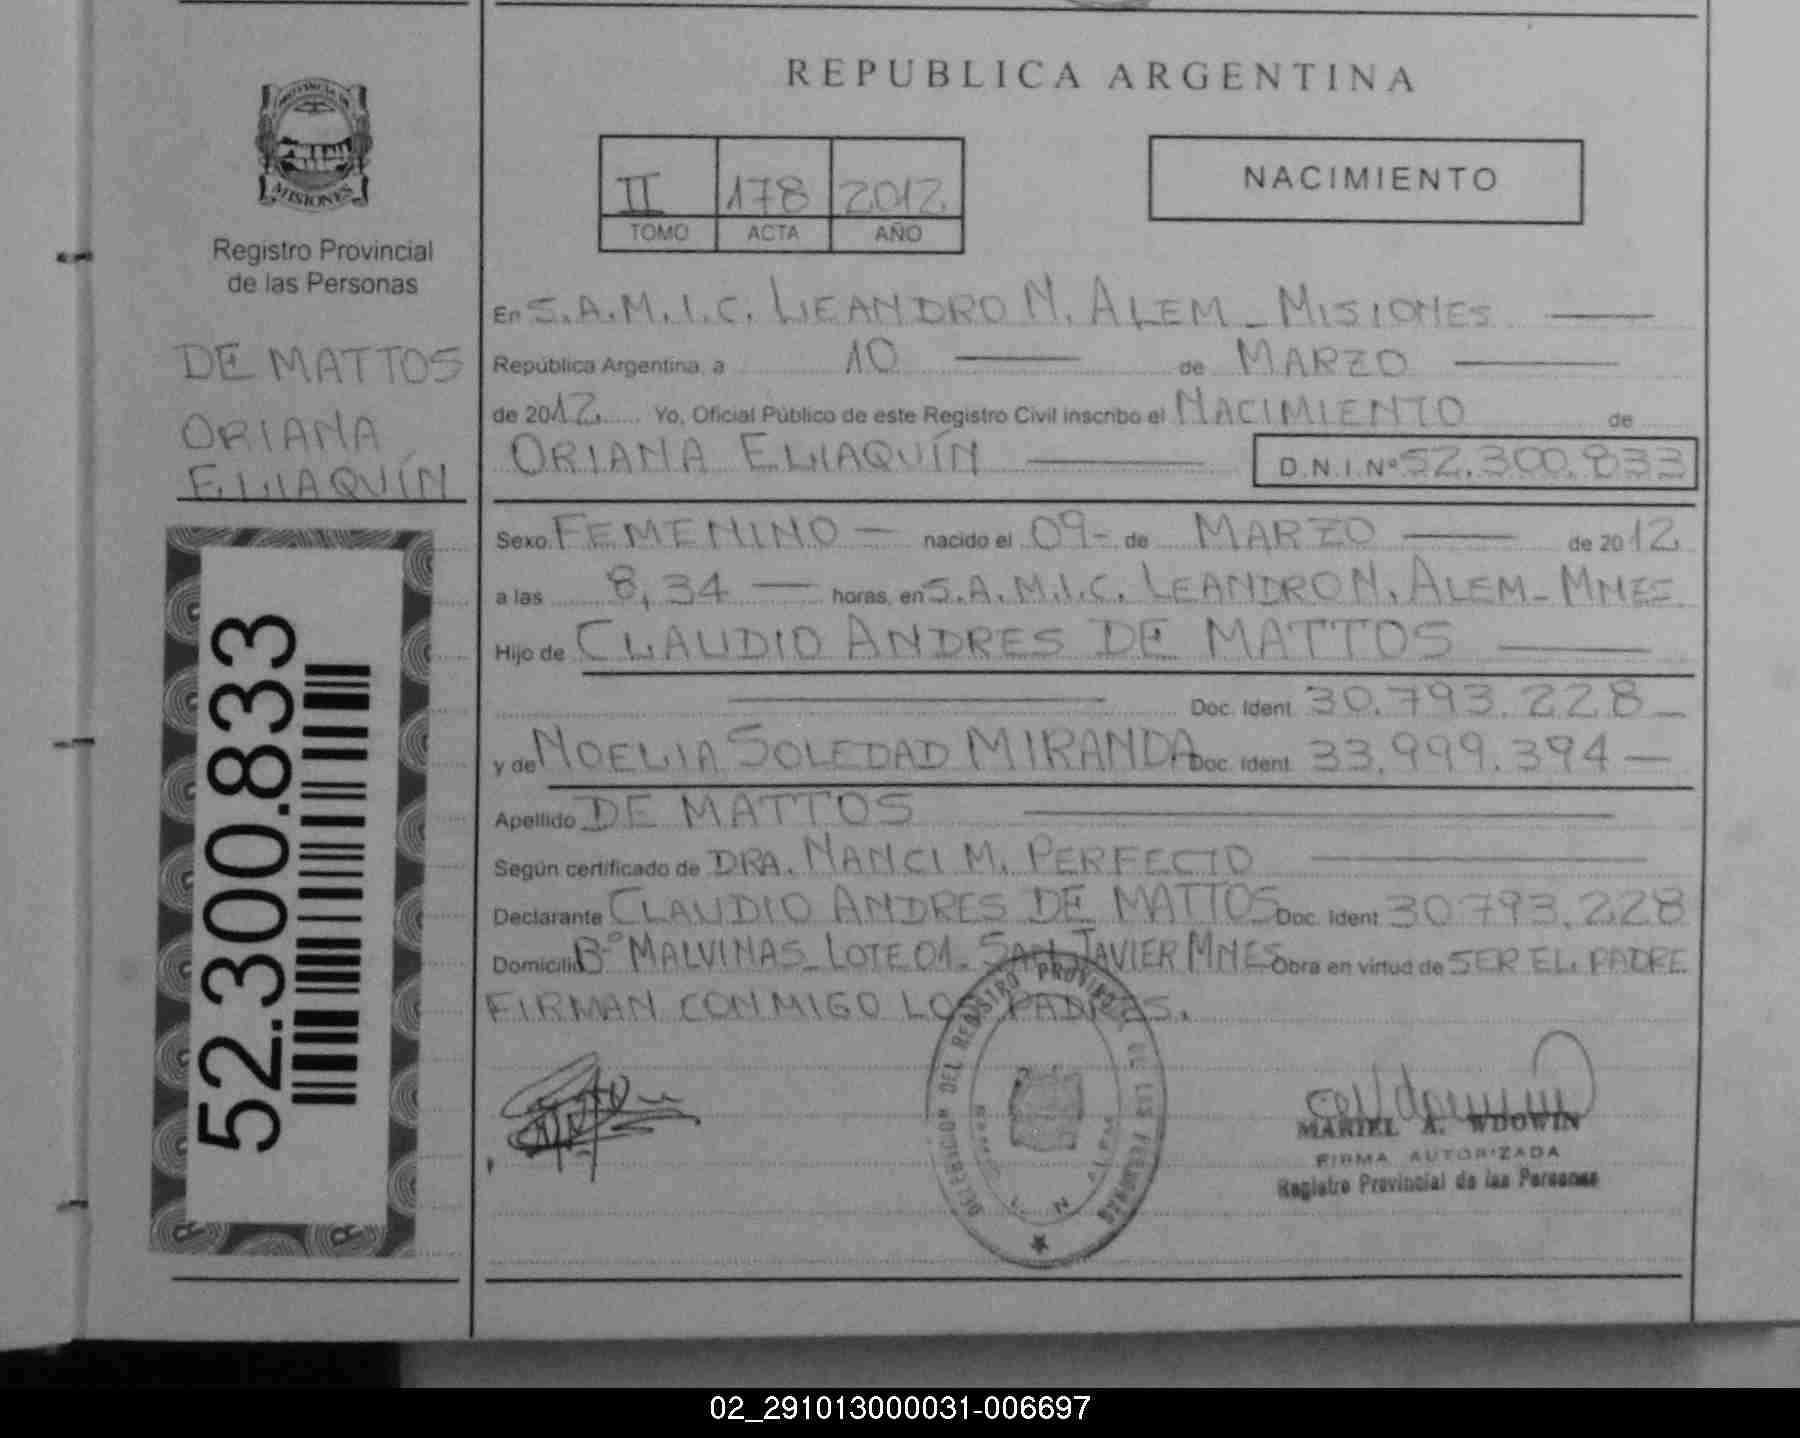 REPUBLICA ARGENTINA
PROVINCIA DE
MISIONES
Registro Provincial
de las Personas
DE MATTOS
ORIANA
ELIAQUÍN
52.300.833
II 178 2012
TOMO ACTA AÑO
NACIMIENTO
En S.A.M.I.C. LEANDRO N. ALEM - MISIONES
República Argentina, a 10 de MARZO
de 2012 Yo, Oficial Público de este Registro Civil inscribo el NACIMIENTO de
ORIANA ELIAQUÍN D.N.I.Nº 52.300.833
Sexo FEMENINO - nacido el 09- de MARZO de 2012
a las 8,34 horas, en S.A.M.I.C. LEANDRO N. ALEM - MNES.
Hijo de CLAUDIO ANDRES DE MATTOS
Doc. Ident. 30.793.228
y de NOELIA SOLEDAD MIRANDA Doc. Ident. 33.999.394
Apellido DE MATTOS
Según certificado de DRA. NANCI M. PERFECTO
Declarante CLAUDIO ANDRES DE MATTOS Doc. Ident. 30.793.228
Domicilio Bº MALVINAS - LOTE 01 - SAN JAVIER MNES Obra en virtud de SER EL PADRE
FIRMAN CONMIGO LOS PADRES.
DELEGACION DEL REGISTRO PROVINCIAL DE LAS PERSONAS
MARIEL A. WDOWIN
FIRMA AUTORIZADA
Registro Provincial de las Personas
02_291013000031-006697